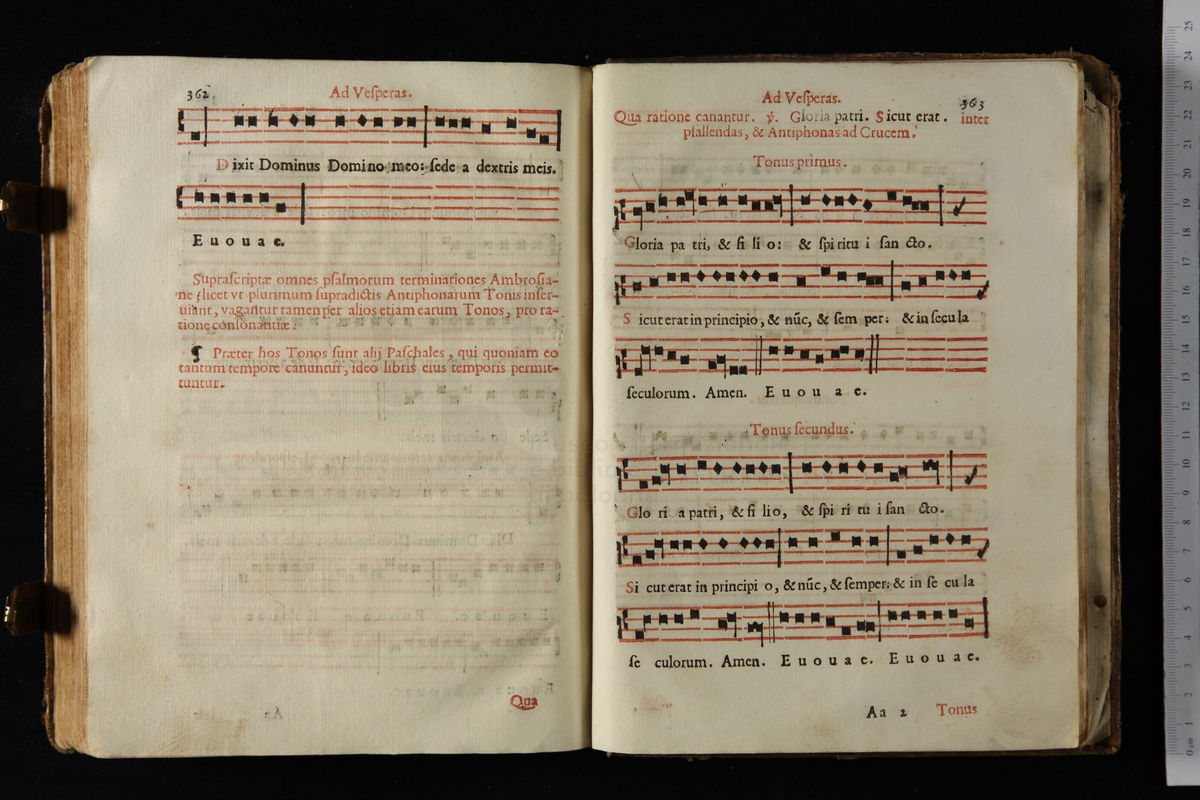 362.
Ad Veſperas.
Dixit Dominus Domino meo: ſede a dextris meis.
E u o u a e.
Supraſcriptæ omnes pſalmorum terminationes Ambroſia-
ne ſlicet vt plurimum ſupradictis Antiphonarum Tonis inſer-
uiant, vagantur tamen per alios etiam earum Tonos, pro ra-
tione conſonantiæ.
¶ Præter hos Tonos ſunt alij Paſchales, qui quoniam eo
tantum tempore canuntur, ideo libris eius temporis permit-
tuntur.
Qua
Ad Veſperas.
363
Qua ratione canantur. ℣. Gloria patri. Sicut erat. inter
pſallendas, & Antiphonas ad Crucem.
Tonus primus.
Gloria pa tri, & fi li o: & ſpi ritu i ſan cto.
S icut erat in principio, & nūc, & ſem per: & in ſecu la
ſeculorum. Amen. E u o u a e.
Tonus ſecundus.
Glo ri a patri, & fi lio, & ſpi ri tu i ſan cto.
Si cut erat in principi o, & nūc, & ſemper: & in ſe cu la
ſe culorum. Amen. E u o u a e. E u o u a e.
Aa 2
Tonus